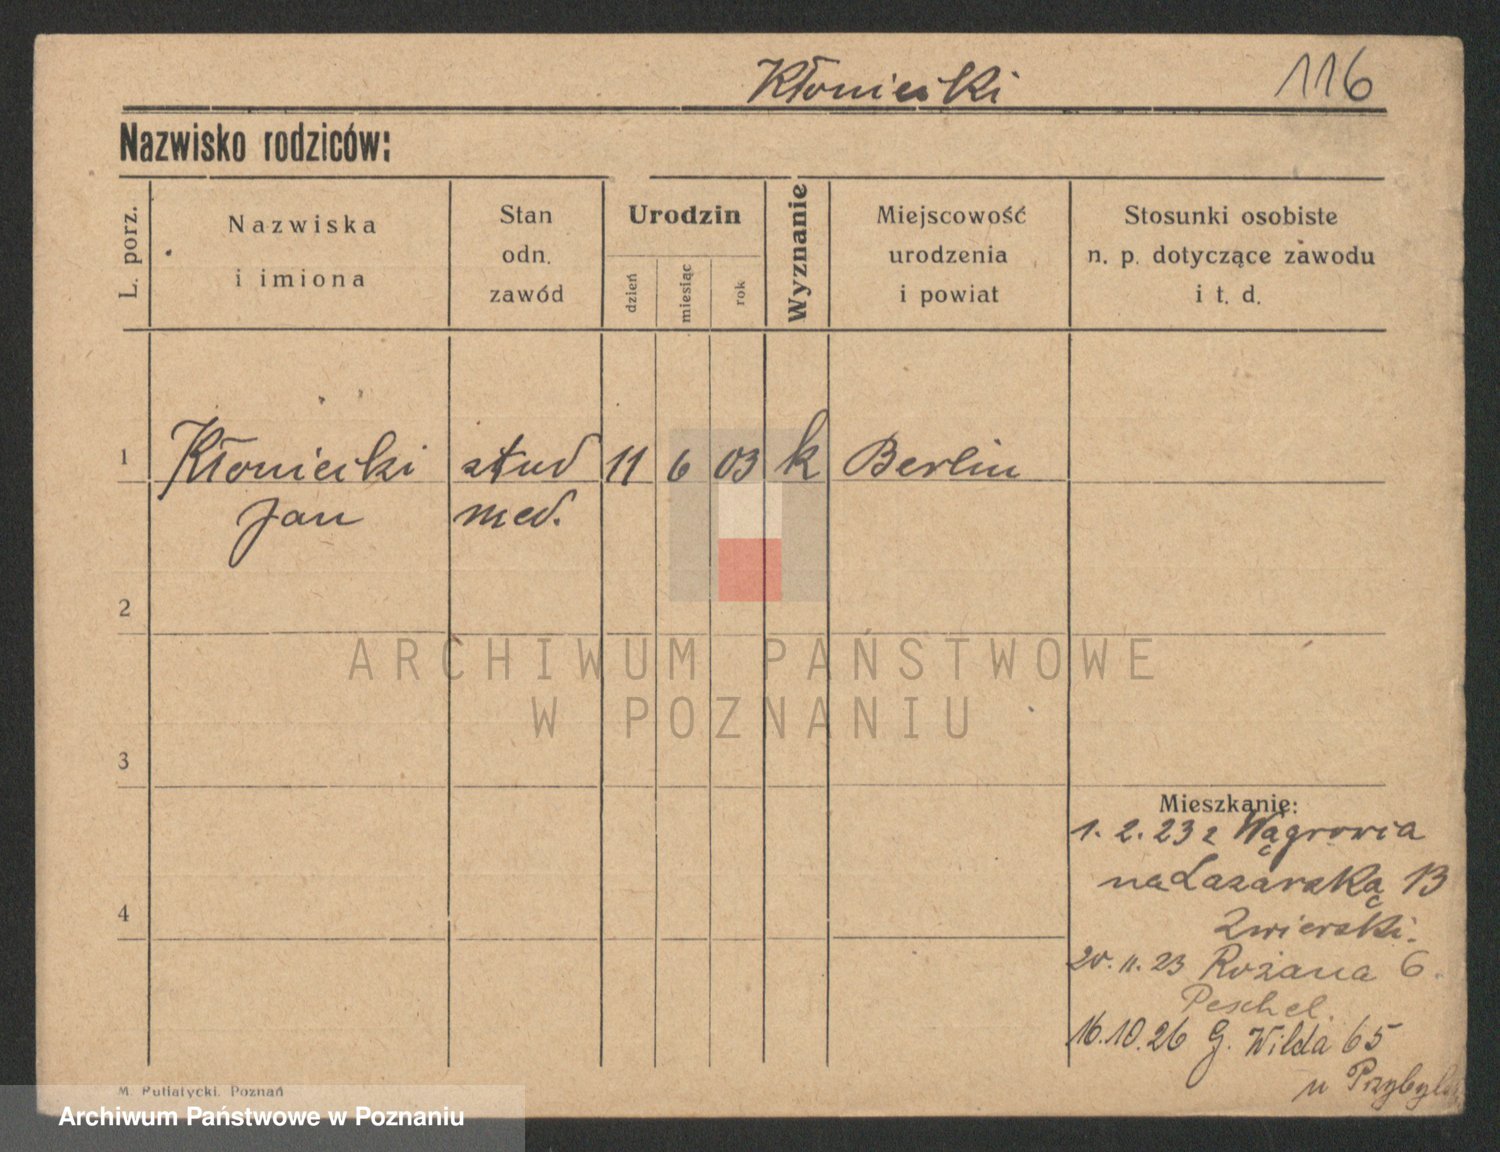 Kłoniecki 116
Nazwisko rodziców:
L. porz.
Nazwiska
i imiona
Stan
odn.
zawód
Urodzin
dzień
miesiąc
rok
Wyznanie
Miejscowość
urodzenia
i powiat
Stosunki osobiste
n. p. dotyczące zawodu
i t. d.
1 Kłoniecki stud 11 6 03 k Berlin
Jan med.
2
ARCHIWUM PAŃSTWOWE
W POZNANIU
3
Mieszkanie:
1. 2. 23 z Wągrowia
na Lazarską 13
4
Zwierski.
20. 11. 23 Różana 6.
Peschel.
16.10.26 G. Wilda 65
u
M. Putiatycki, Poznań
Archiwum Państwowe w Poznaniu